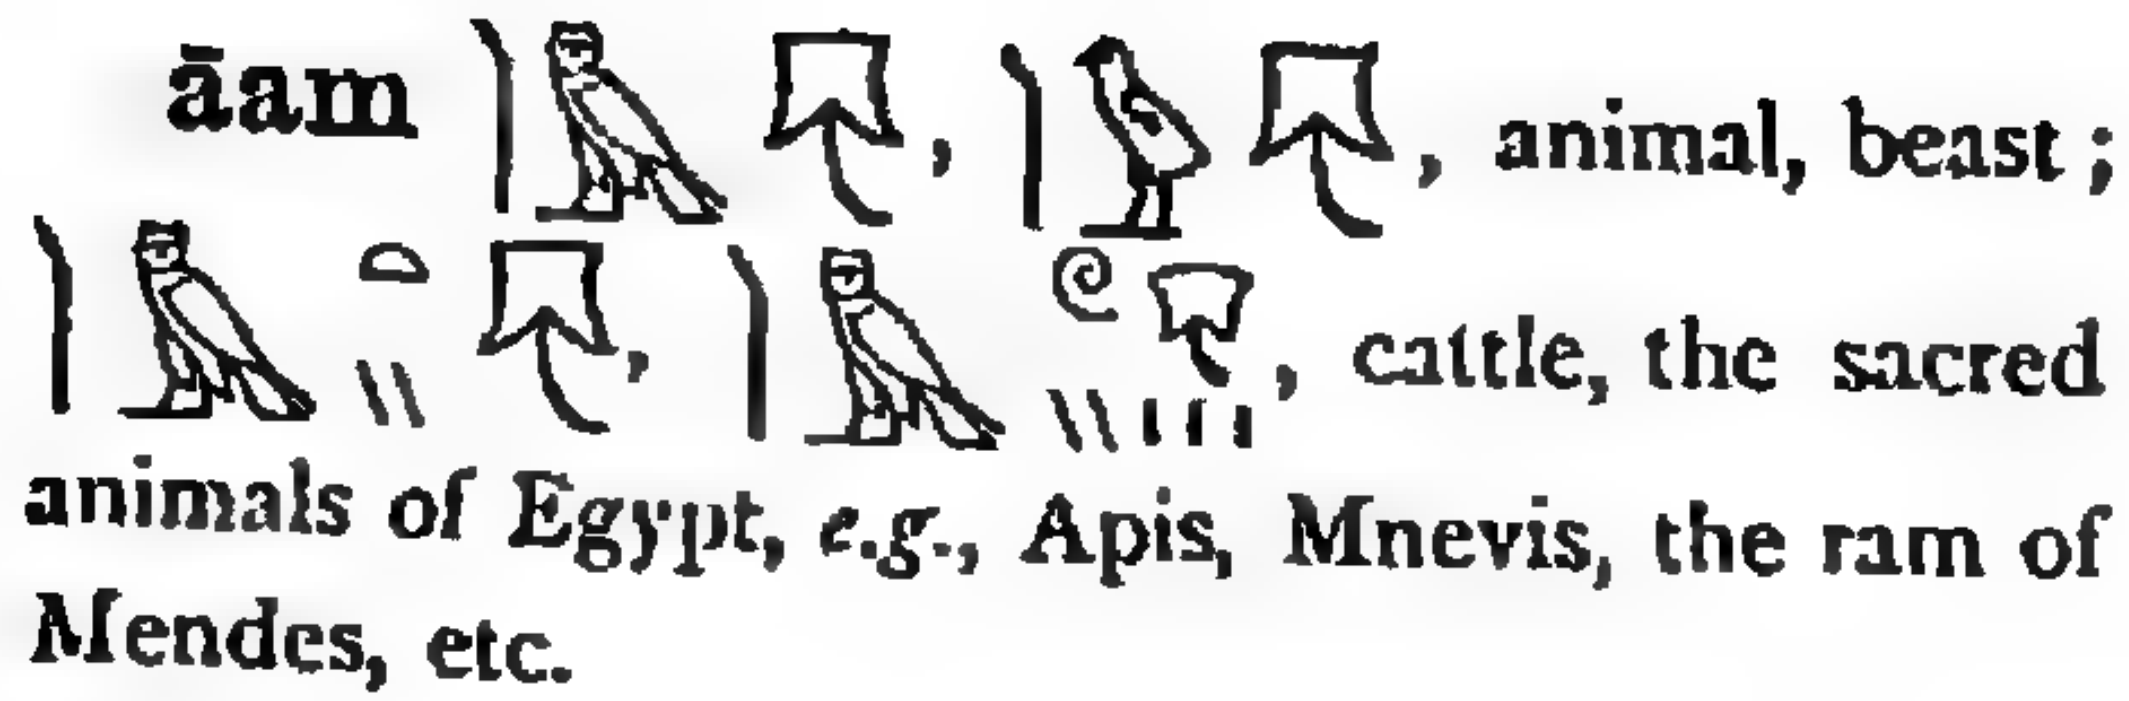 āam 𓌙𓅓𓄛, 𓌙𓅱𓄛, animal, beast ;
𓌙𓅓𓏏𓏭𓄛, 𓌙𓅓𓏲𓏭𓄛𓏥, cattle, the sacred
animals of Egypt, e.g., Apis, Mnevis, the ram of
Mendes, etc.